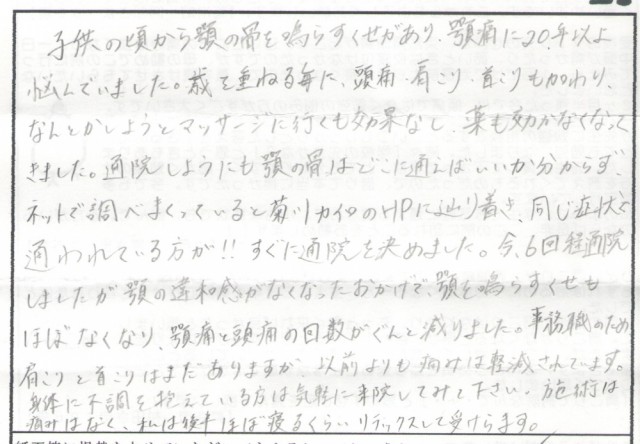 子供の頃から顎の骨を鳴らすくせがあり、顎痛に20年以上
悩んでいました。歳を重ねる毎に、頭痛・肩こり・首こりも加わり、
なんとかしようとマッサージに行くも効果なし、薬も効かなくなって
きました。通院しようにも顎の骨はどこに通えばいいか分からず、
ネットで調べまくっていると菊川カイロのHPに辿り着き、同じ症状で
通われている方が!! すぐに通院を決めました。今、6回程通院
しましたが顎の違和感がなくなったおかげで、顎を鳴らすくせも
ほぼなくなり、顎痛と頭痛の回数がぐんと減りました。事務職のため
肩こりと首こりはまだありますが、以前よりも痛みは軽減されています。
身体に不調を抱えている方は気軽に来院してみて下さい。施術は
痛みはなく、私は後半ほぼ寝るくらいリラックスして受けてます。